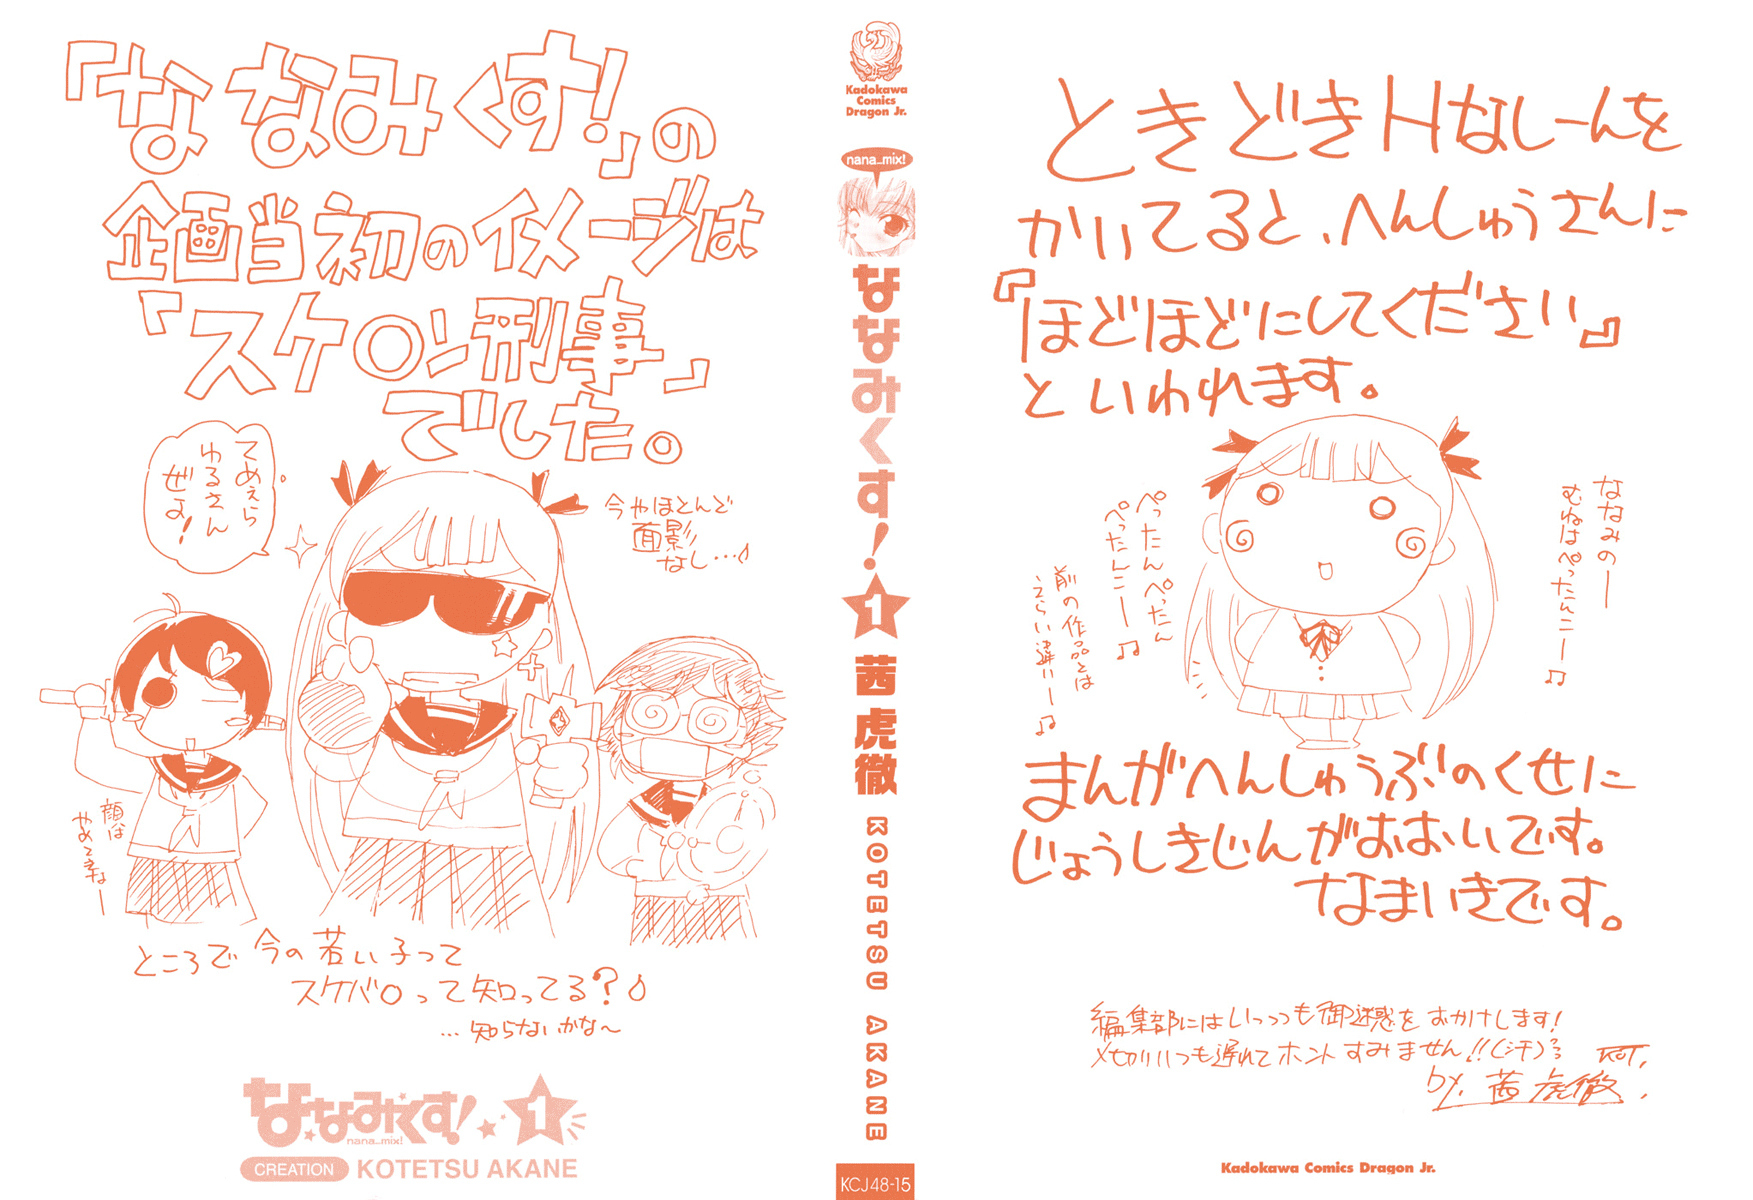 「ななみくす!」の
企画当初のイメージは
「スケ〇ン刑事」
でした。
てめぇら
ゆるさん
ぜよ!
今やほとんど
面影
なし…♪
顔は
やめてネー
ところで今の若い子って
スケバ〇って知ってる?♪
…知らないかな〜
ななみくす!
nana_mix!
1
CREATION KOTETSU AKANE
Kadokawa
Comics
Dragon Jr.
nana_mix!
ななみくす!
1
茜 虎徹
KOTETSU AKANE
KCJ48-15
ときどきHなしーんを
かいてると、へんしゅうさんに
『ほどほどにしてください』
といわれます。
ななみのー
むねはぺったんこー♫
ぺったんぺったん
ぺったんこー♫
前の作品とは
えらい違いー♫
まんがへんしゅうぶのくせに
じょうしきじんがおおいです。
なまいきです。
編集部にはいっつも御迷惑をおかけします!
〆切りいつも遅れてホントすみません!!(汗)
KOT.
by. 茜虎徹.
Kadokawa Comics Dragon Jr.